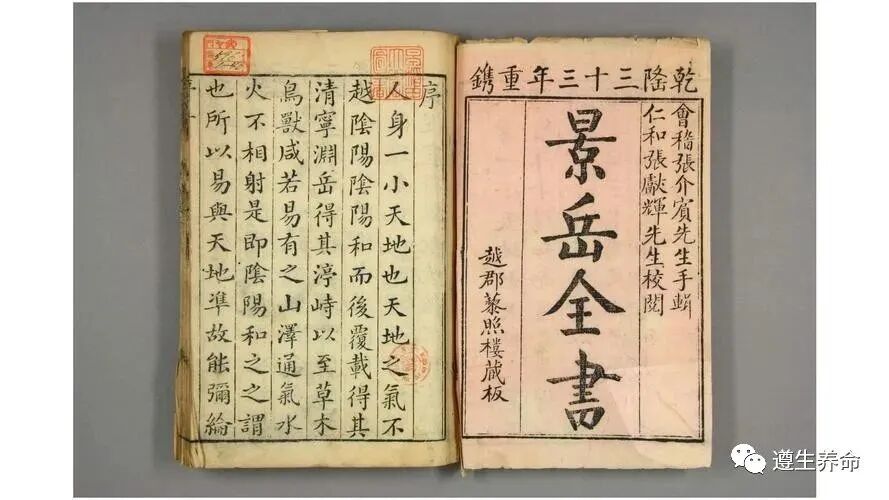 乾隆三十三年重鐫
會稽張介賓先生手輯
仁和張獻輝先生校閱
景岳全書
越郡藜照樓藏板
序
人身一小天地也天地之氣不
越陰陽陰陽和而後覆載得其
清寧淵岳得其渟峙以至草木
鳥獸咸若易有之山澤通氣水
火不相射是即陰陽和之之謂
也所以易與天地準故能彌綸
遵生养命